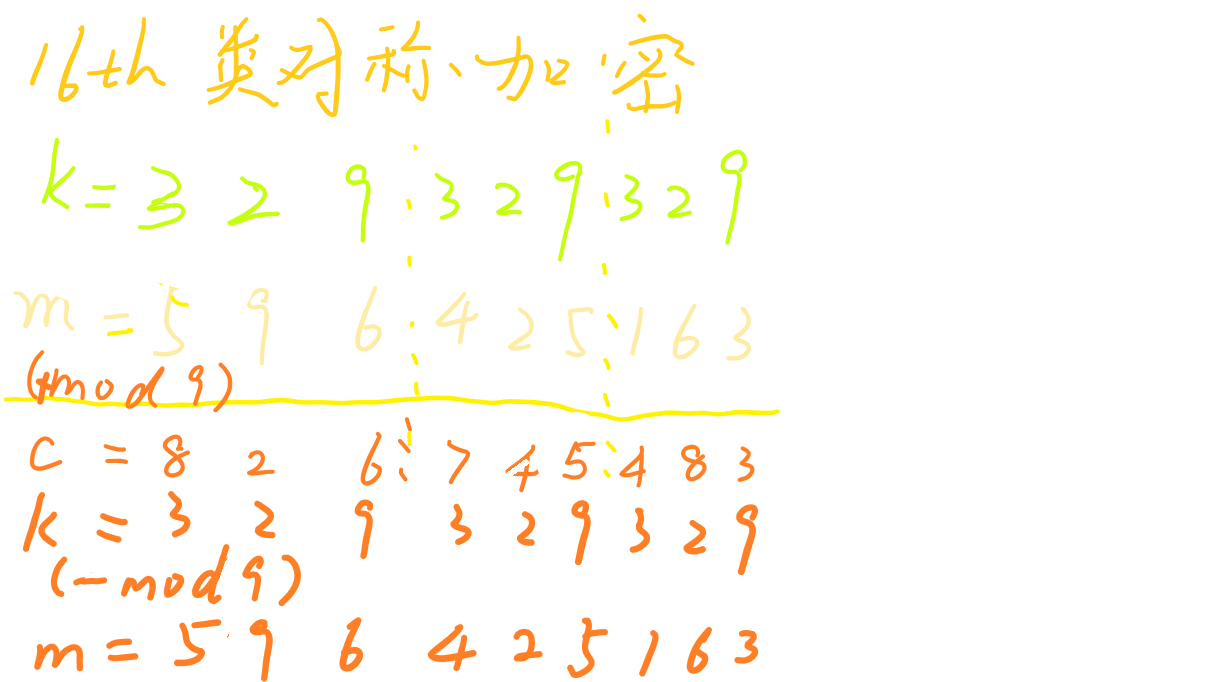 16th 类对称、加密
k = 3 2 9 3 2 9 3 2 9
m = 5 9 6 4 2 5 1 6 3
(+mod 9)
c = 8 2 6 7 4 5 4 8 3
k = 3 2 9 3 2 9 3 2 9
(-mod 9)
m = 5 9 6 4 2 5 1 6 3